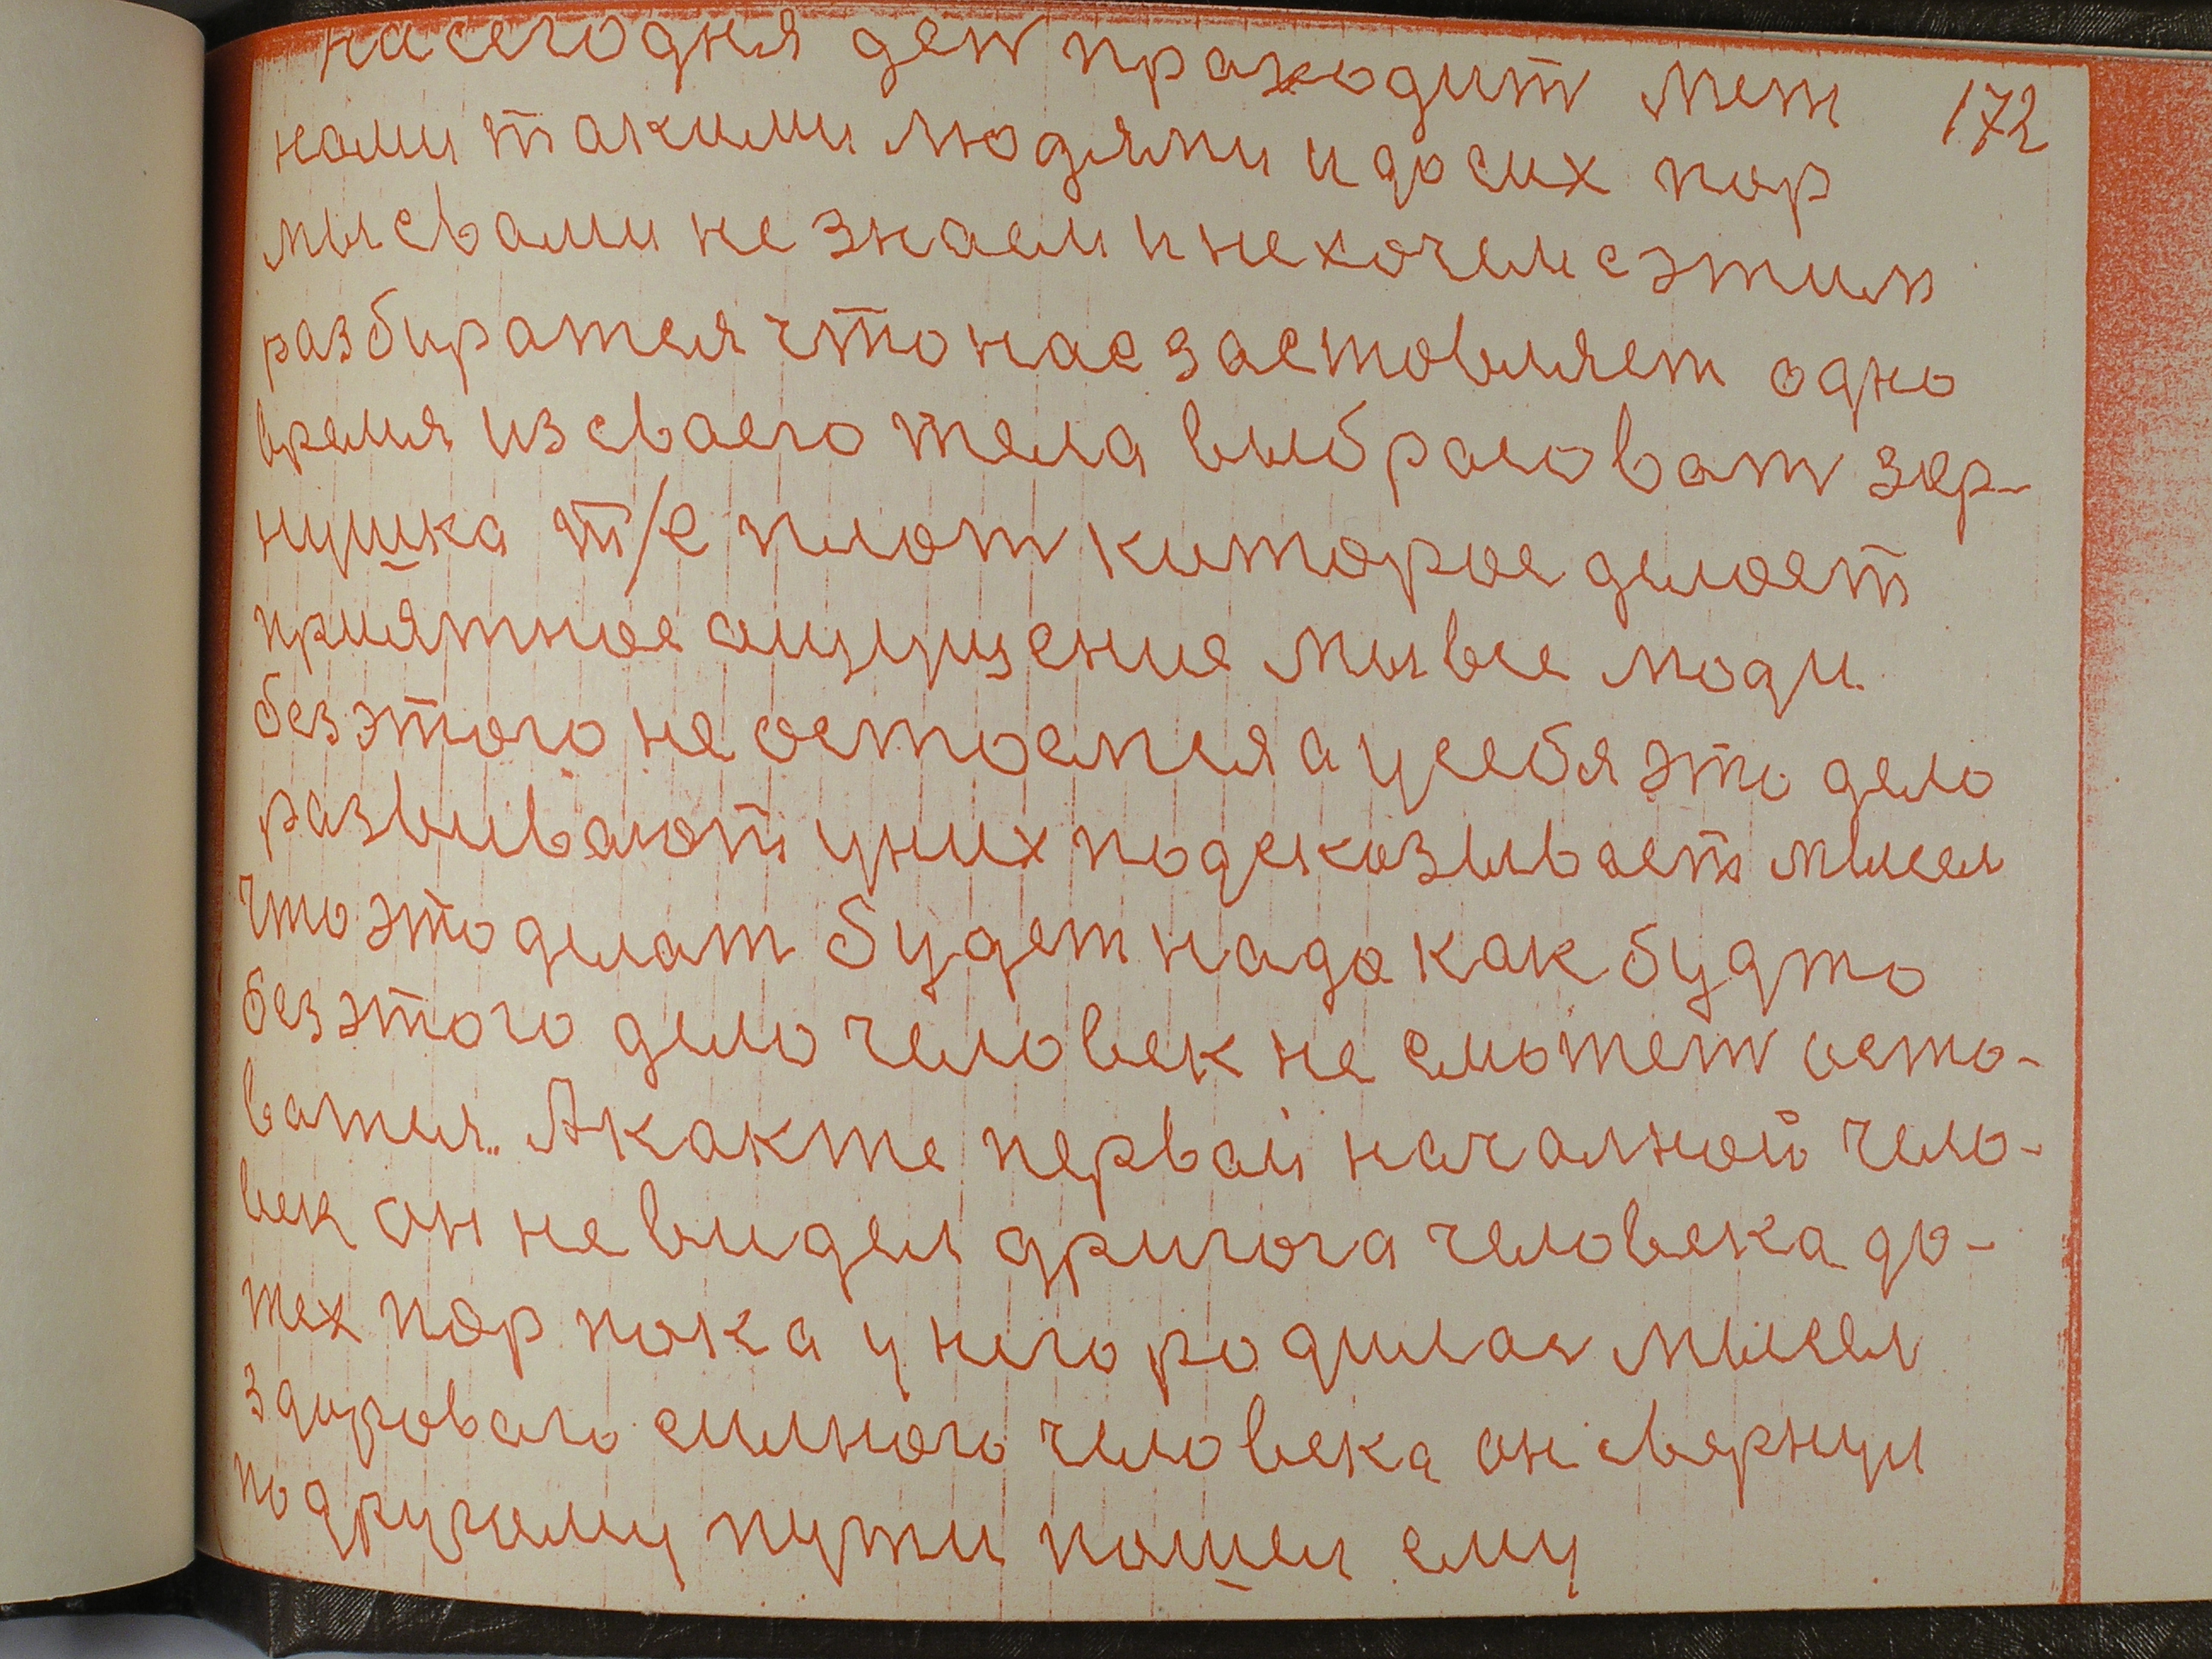 на сегодня ден праходит меж 172
нами такими людями и до сих пор
мы свами не знаем и не хочем с этим
разбиратся что нас заставляет одно
время из сваего тела выбрасоват зер-
нушка т/е плот киторое делает
приятное ащущение мы все люди
без этого не остаемся а у себя это дело
развивают у них подсказывает мысел
что это делат будет надо как будто
без этого дело человек не сможет оста-
ватся.. А как же первай началной чело-
век он не видел дригога человека до-
тех пор пока у него родилас мысел
здироваго силного человека он свернул
по другому пути пошел ему